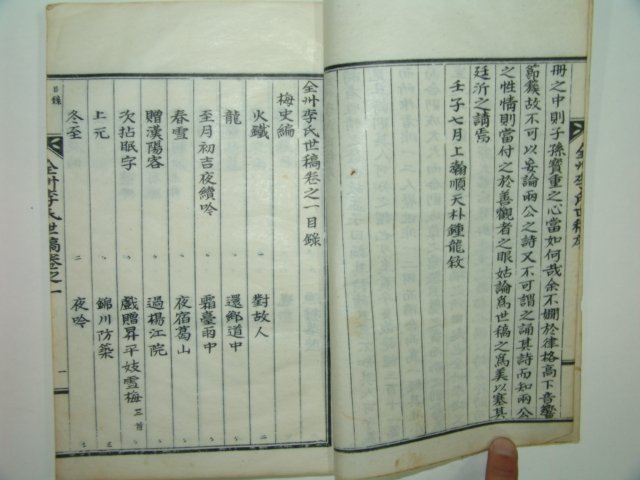 冊之中則子孫寶重之心當如何哉余不嫺於律格高下音響
節簇故不可以妄論兩公之詩又不可謂之誦其詩而知兩公
之性情則當付之於善觀者之眼姑論爲世稿之爲美以塞其
廷沂之請焉
壬子七月上澣順天朴鍾龍敘
全州李氏世稿卷之一目錄
梅史編
火鐵 一 對故人 二
龍 還鄕道中
至月初吉夜續吟 霜臺雨中
春雪 夜宿葛山
贈漢陽客 過楊江院
次拈眠字 戲贈昇平妓雪梅 三首
上元 錦川防築
冬至 二 夜吟
目錄
全州李氏世稿卷之一
一